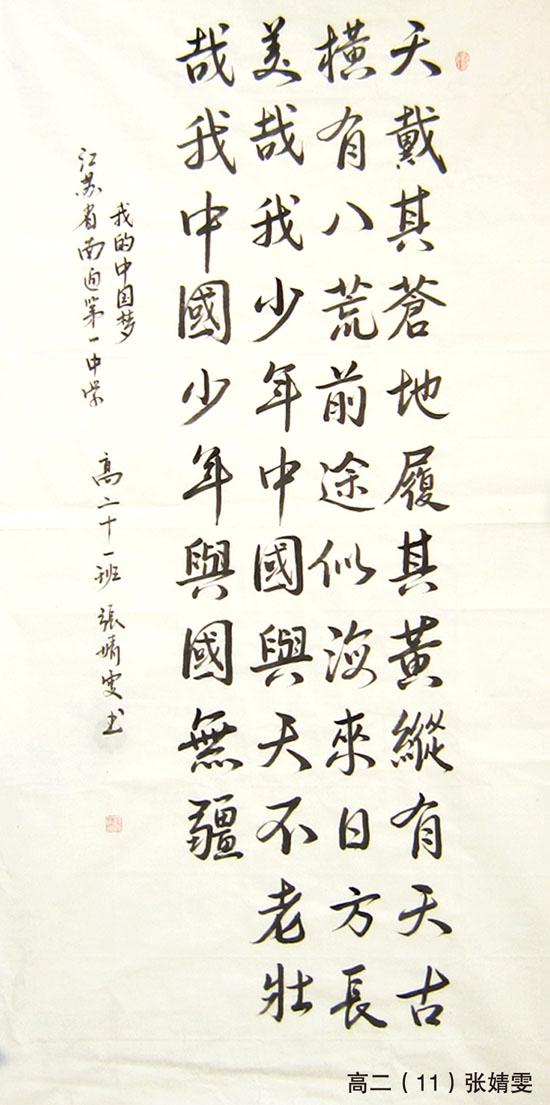 天戴其蒼地履其黃縱有天古
橫有八荒前途似海來日方長
美哉我少年中國與天不老壯
哉我中國少年與國無疆
我的中国梦
江苏省南通第一中学 高二十一班 張婧雯书
高二（11）张婧雯